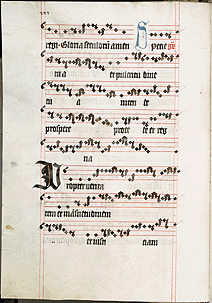 regi. Gloria seculorum amen
tu a et pulcritudine
tu a inten de
prospere proce de et reg
na
Propter verita
tem et mansuetudinem
et iusti ciam